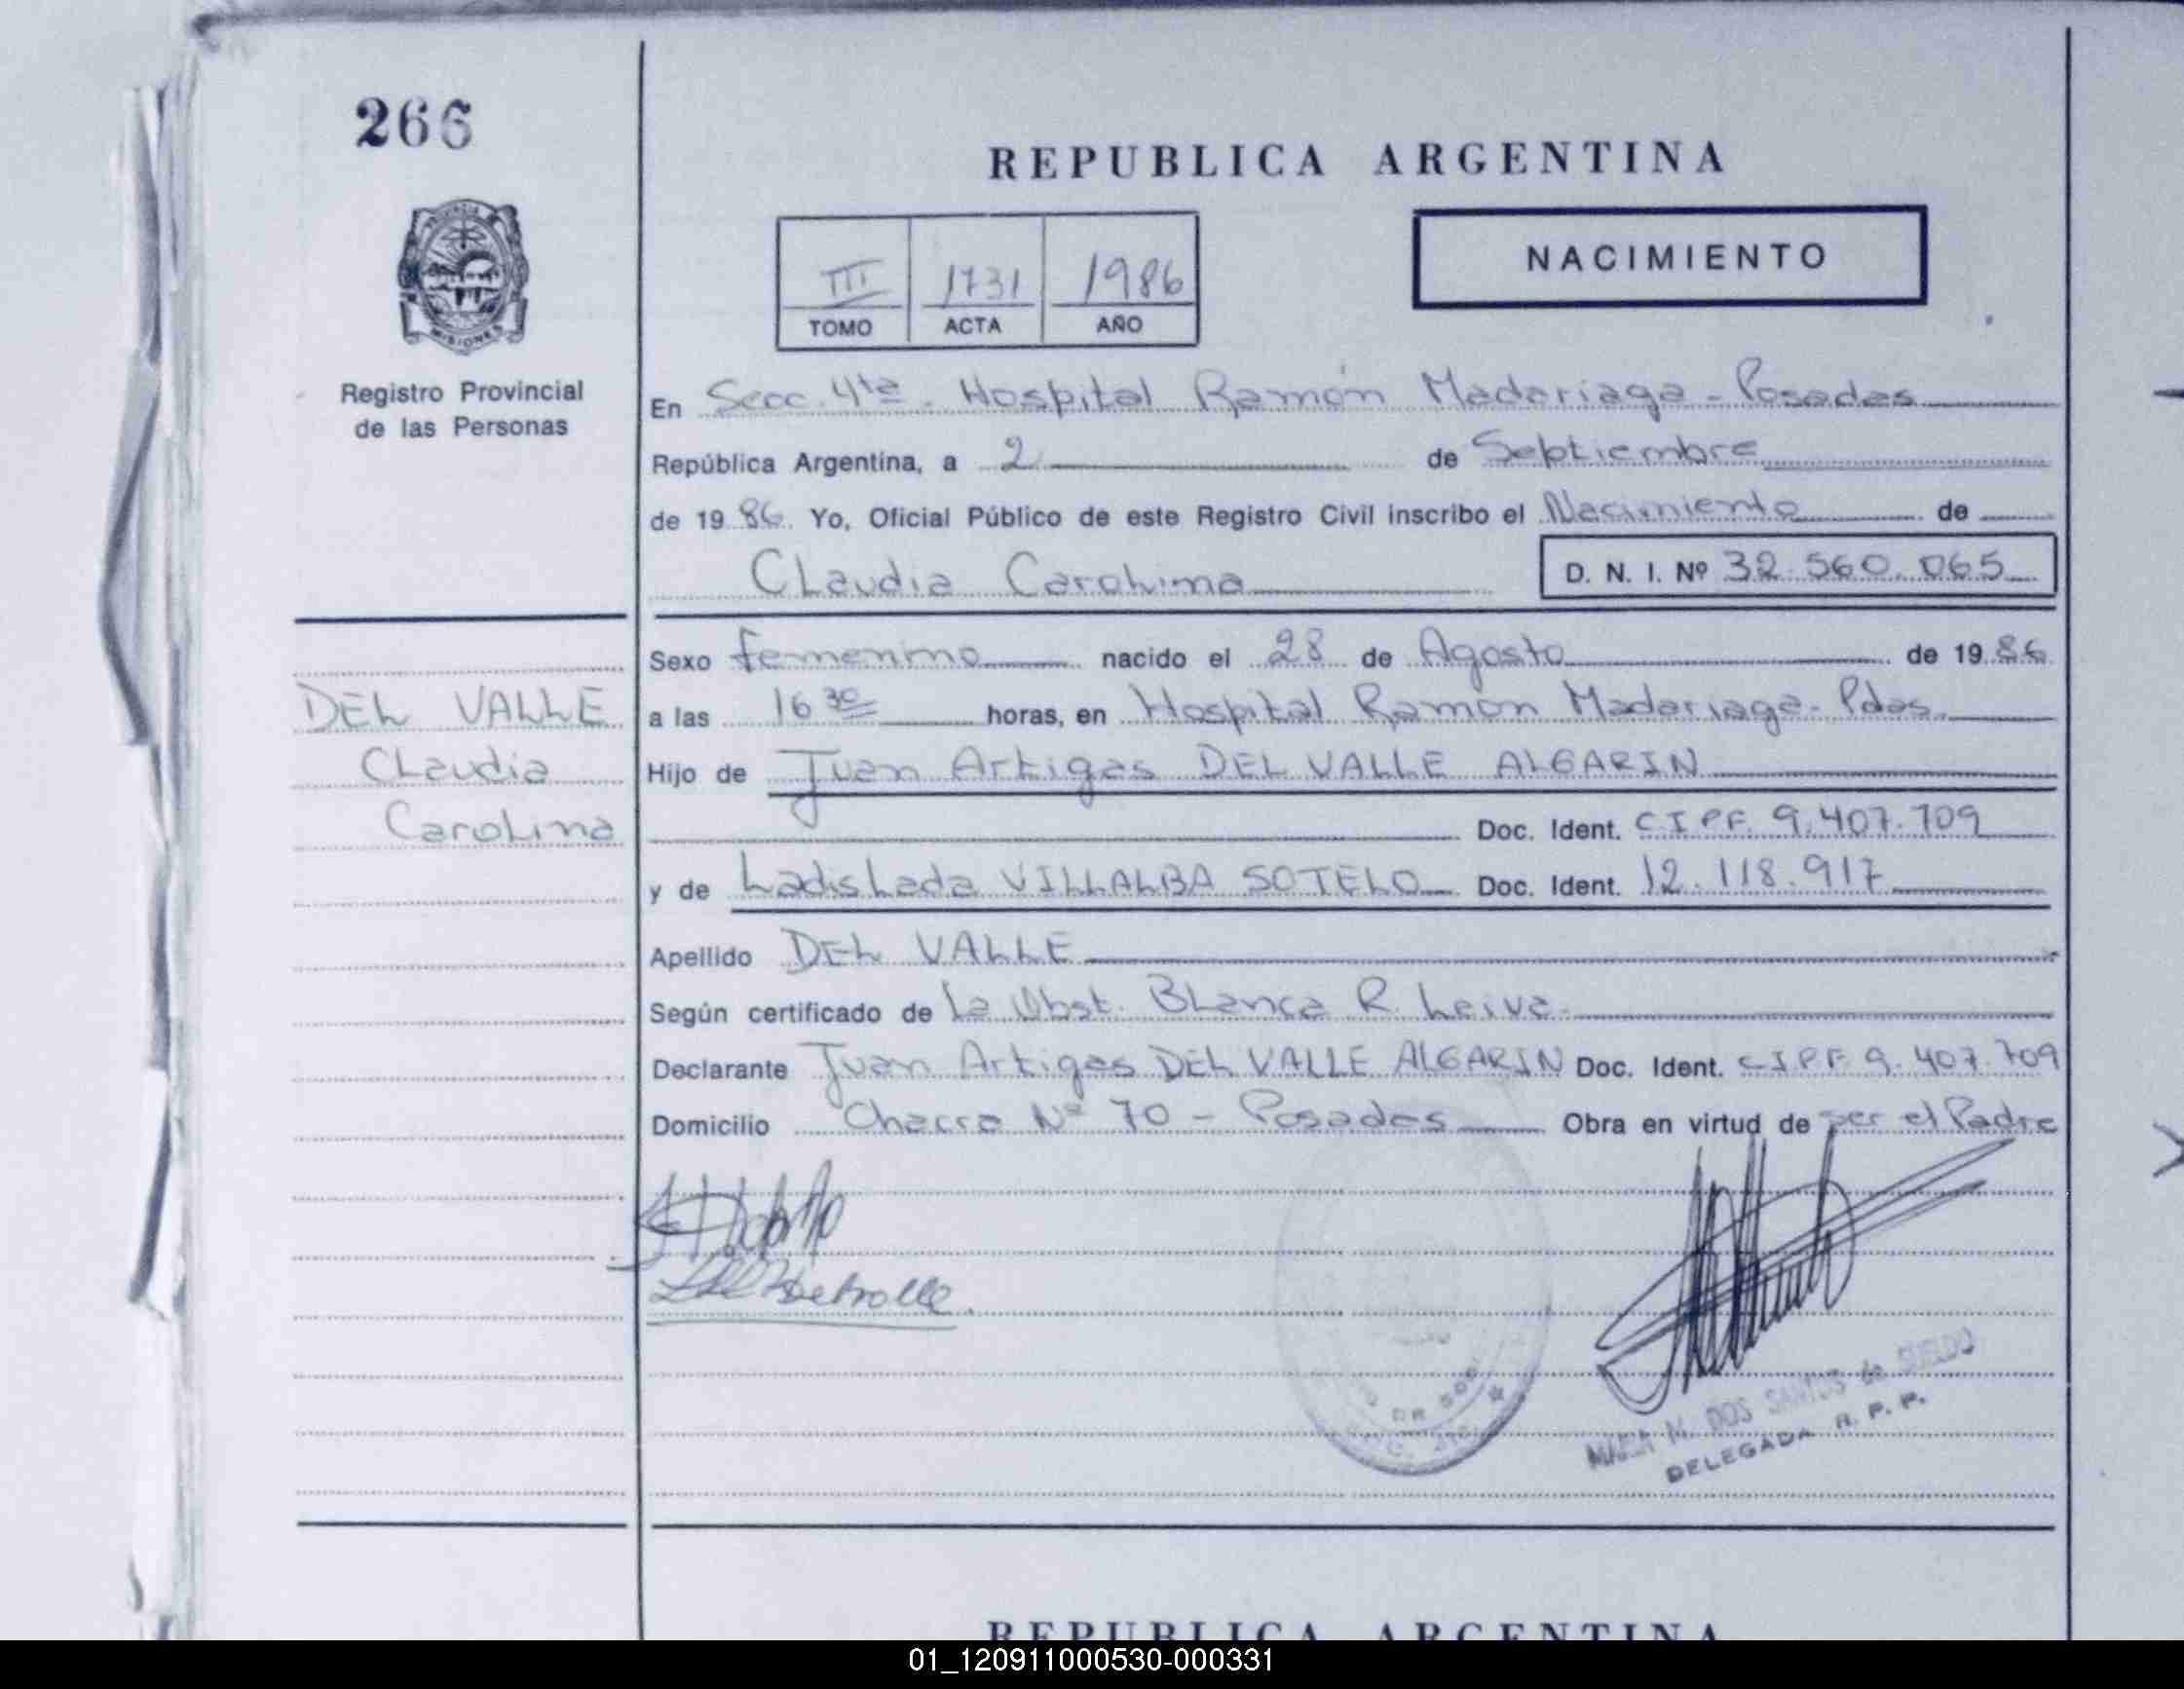 266
REPUBLICA ARGENTINA
PROVINCIA DE
MISIONES
III 1731 1986
TOMO ACTA AÑO
NACIMIENTO
Registro Provincial
de las Personas
En Secc. 4ta. Hospital Ramón Madariaga - Posadas
República Argentina, a 2 de Septiembre
de 19 86. Yo, Oficial Público de este Registro Civil inscribo el Nacimiento de
Claudia Carolina D. N. I. Nº 32.560.065
Sexo femenino nacido el 28 de Agosto de 19 86
DEL VALLE
Claudia
Carolina
a las 16 30 horas, en Hospital Ramón Madariaga - Pdas.
Hijo de Juan Artigas DEL VALLE ALGARIN
Doc. Ident. CIPF 9.407.709
y de Ladislada VILLALBA SOTELO Doc. Ident. 12.118.917
Apellido DEL VALLE
Según certificado de La Obst. Blanca R. Leiva
Declarante Juan Artigas DEL VALLE ALGARIN Doc. Ident. CIPF 9.407.709
Domicilio Chacra Nº 70 - Posadas Obra en virtud de ser el Padre
M. DOS SANTOS de SUELDO
DELEGADA R. P. P.
REPUBLICA ARGENTINA
01_120911000530-000331